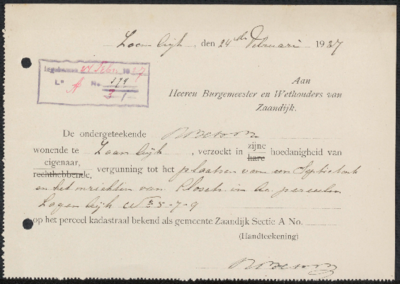 Zaandijk, den 24 sten Februari 1937
Ingekomen 24 Febr. 1937
La A No. 198
Aan
Heeren Burgemeester en Wethouders van
Zaandijk.
De ondergeteekende
wonende te Zaandijk, verzoekt in zijne hare hoedanigheid van
eigenaar,
rechthebbende, vergunning tot het plaatsen van een Septictank
en het inrichten van Closets in de perceelen
Lagendijk No 3-5-7-9
op het perceel kadastraal bekend als gemeente Zaandijk Sectie A No.
(Handteekening)